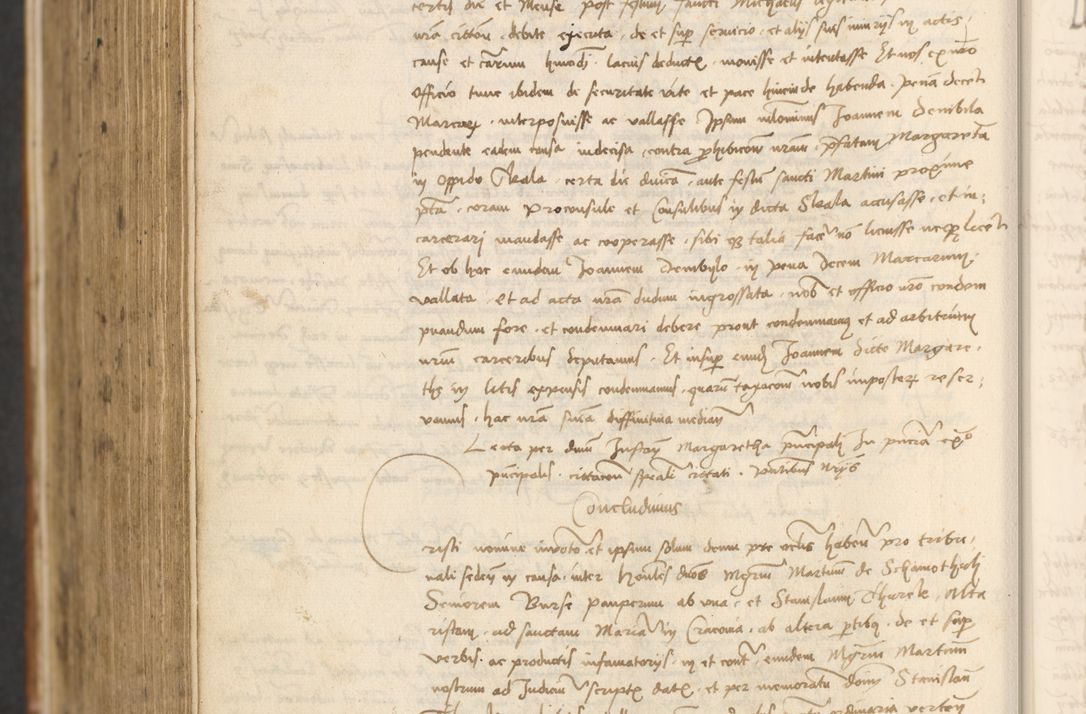 certis die et Mense post festum sancti Michaelis
nrã cittõm debite executa de et sup servicio et alijs suis iniurijs in actis
cause et cãrum hmõdj lacius deductis movisse et intentasse Et nos ex nrõ
Officio tunc ibidem de securitate vite et pace hincinde habenda pena decem
Marcarum interposuisse ac vallasse Ipsum nihilominus Joannem Dembila
pendente eadem causa indecisa contra prohibicionem nram prefatam Margaretham
in Oppido Skala certa die dnica ante festum sancti Martini proxime
pta coram Proconsule et Consulibus in dicta Skala accusasse et in
carcerari mandasse ac cooperasse sibi q talia facere non licuisse neque licere
Et ob hac eundem Joannem Dembylo in pena Decem Marcarum
vallata et ad acta nram dudum ingrossata nobis et officio nro condem
pnandum fore et condemnari debere prout condemnamus et ad arbitrium
nrum carceribus deputamus Et insup eundem Joannem dicte Margare
the in litis expensis condemnamus quarum taxacionem nobis imposterum reser
vamus hac nram snia diffinitiva mediante
Lecta per dnum Justam Margaretha principali In pntia ex
principalis cittacionem speciali cittati
Concludimus
risti nomine invocato et ipsum solum deum pre oculis habentes pro tribu
nali seden in causa inter honoles dnos Mgrum Martinum de Schamothuli
Seniorem Burse pauperum ab una et Stanislaum Thurek Alta
ristam ad sanctam Mariam in Cracovia ab altera partibus de et sup
verbis ac productis infamatorijs in et contra eundem Mgrum Martinum
nostrum ad Judicium scriptis datis et per memoratum domi Stanislaum
ordinaria vertem